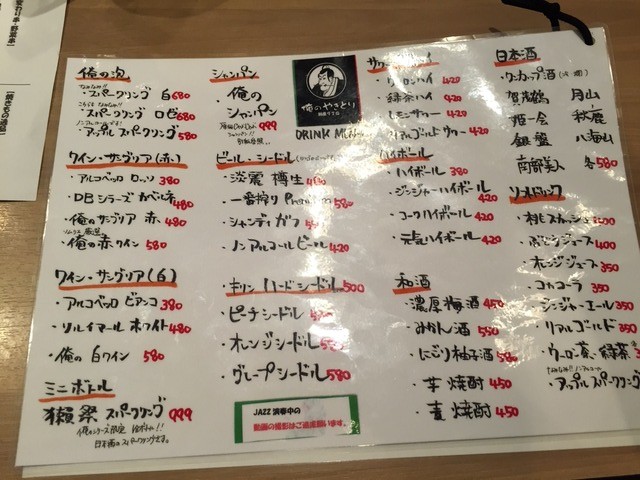 俺の泡
・スパークリング 白 680
・スパークリング ロゼ 680
・アップルスパークリング 580
ワイン・サングリア(赤)
・アルコベッロ ロッソ 380
・DBシラーズカベルネ 480
・俺のサングリア 赤 480
・俺の赤ワイン 580
ワイン・サングリア(白)
・アルコベッロ ビアンコ 380
・ソルイマール ホワイト 480
・俺の白ワイン 580
ミニボトル
獺祭 スパークリング 999
シャンパン
・俺の
シャンパン 999
俺のやきとり
DRINK Menu
ビール・シードル
・淡麗 樽生
・一番搾り Premium 580
・シャンディガフ
・ノンアルコールビール 420
・キリン ハードシードル 500
・ピーチシードル 580
・オレンジシードル 580
・グレープシードル 580
JAZZ 演奏中の
動画の撮影はご遠慮願います。
サワー・ハイ
・ウーロンハイ 420
・緑茶ハイ 420
・レモンサワー 420
・リアルゴールドサワー 420
ハイボール
・ハイボール 380
・ジンジャーハイボール 420
・コークハイボール 420
・元気ハイボール 420
和酒
・濃厚梅酒 450
・みかん酒 550
・にごり柚子酒 580
・芋焼酎 450
・麦焼酎 450
日本酒
・ワンカップ酒
賀茂鶴 月山
姫一会 秋鹿
銀盤 八海山
南部美人 各580
ソフトドリンク
・桃スカッシュ 400
・ぶどうジュース 400
・オレンジジュース 350
・コカコーラ 350
・ジンジャーエール 350
・リアルゴールド 350
・ウーロン茶・緑茶
・アップルスパークリング